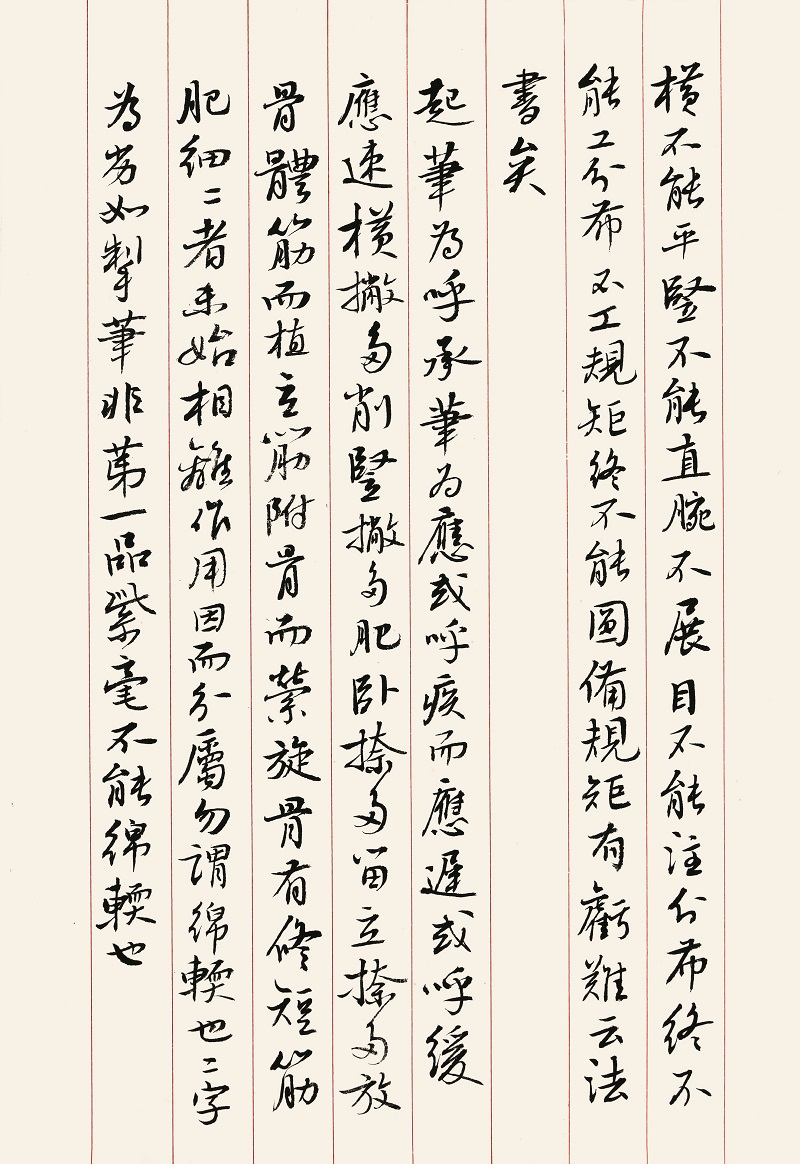 橫不能平豎不能直腕不展目不能注分布終不
能工分布不工規矩終不能圓備規矩有虧難云法
書矣
起筆為呼承筆為應或呼疾而應遲或呼緩
應速橫撇多削豎撇多肥臥捺多留立捺多放
骨體筋而植立筋附骨而縈旋骨有修短筋
肥細二者未始相離作用因而分屬勿謂綿輭也二字
為劣如掣筆非第一品紫毫不能綿輭也